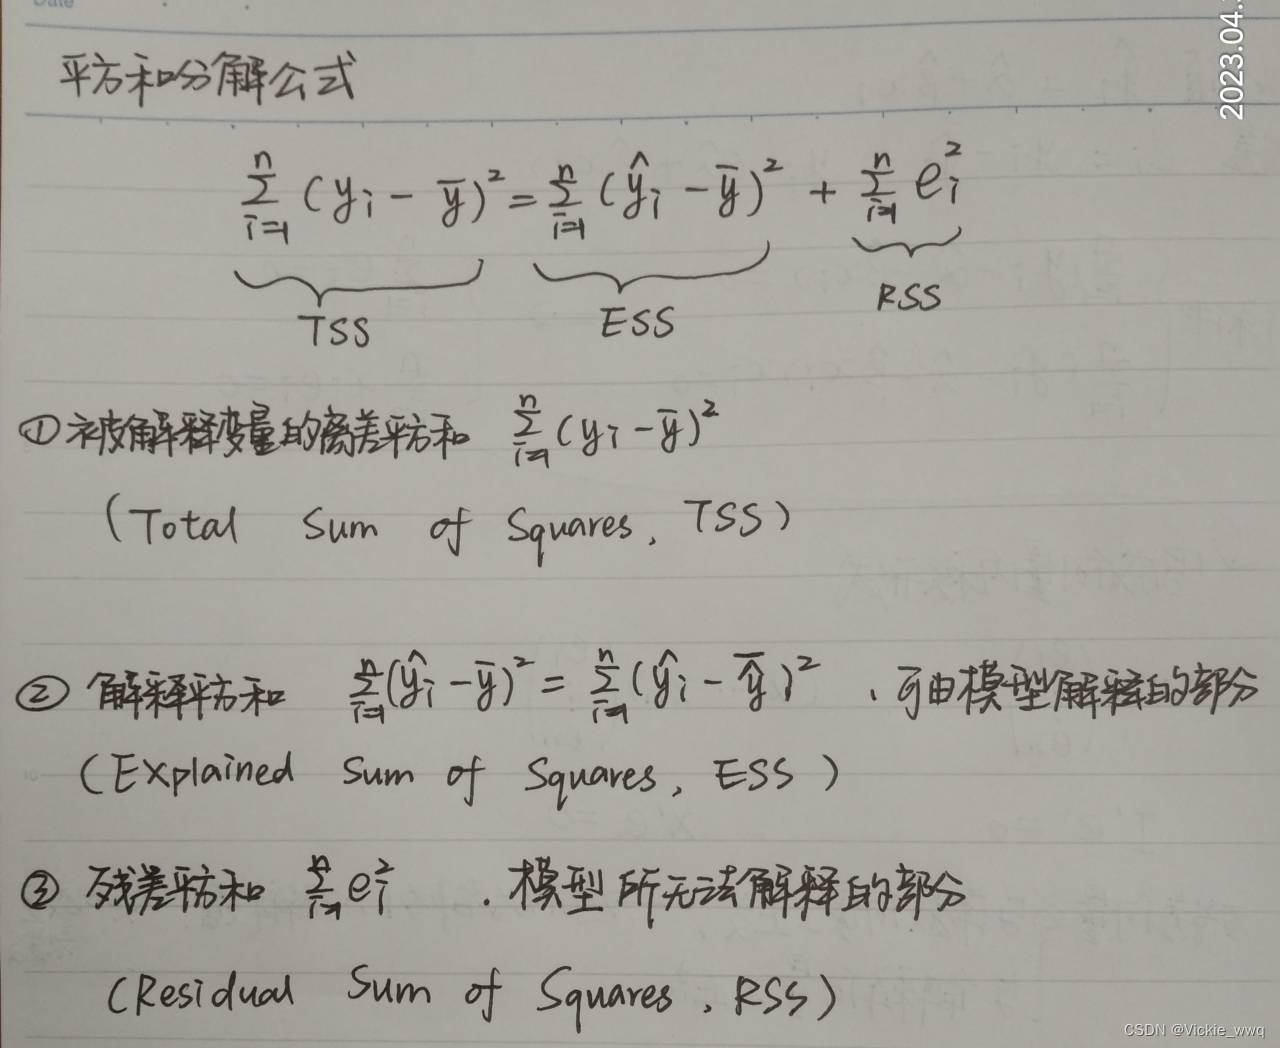 Date
2023.04.
平方和分解公式
$\sum_{i=1}^{n} (y_i - \bar{y})^2 = \sum_{i=1}^{n} (\hat{y}_i - \bar{y})^2 + \sum_{i=1}^{n} e_i^2$
TSS ESS RSS
① 被解释变量的离差平方和 $\sum_{i=1}^{n} (y_i - \bar{y})^2$
(Total Sum of Squares, TSS)
② 解释平方和 $\sum_{i=1}^{n} (\hat{y}_i - \bar{y})^2 = \sum_{i=1}^{n} (\hat{y}_i - \bar{\hat{y}})^2$ , 可由模型解释的部分
(Explained Sum of Squares, ESS)
③ 残差平方和 $\sum_{i=1}^{n} e_i^2$ , 模型所无法解释的部分
(Residual Sum of Squares, RSS)
CSDN @Vickie_wwq